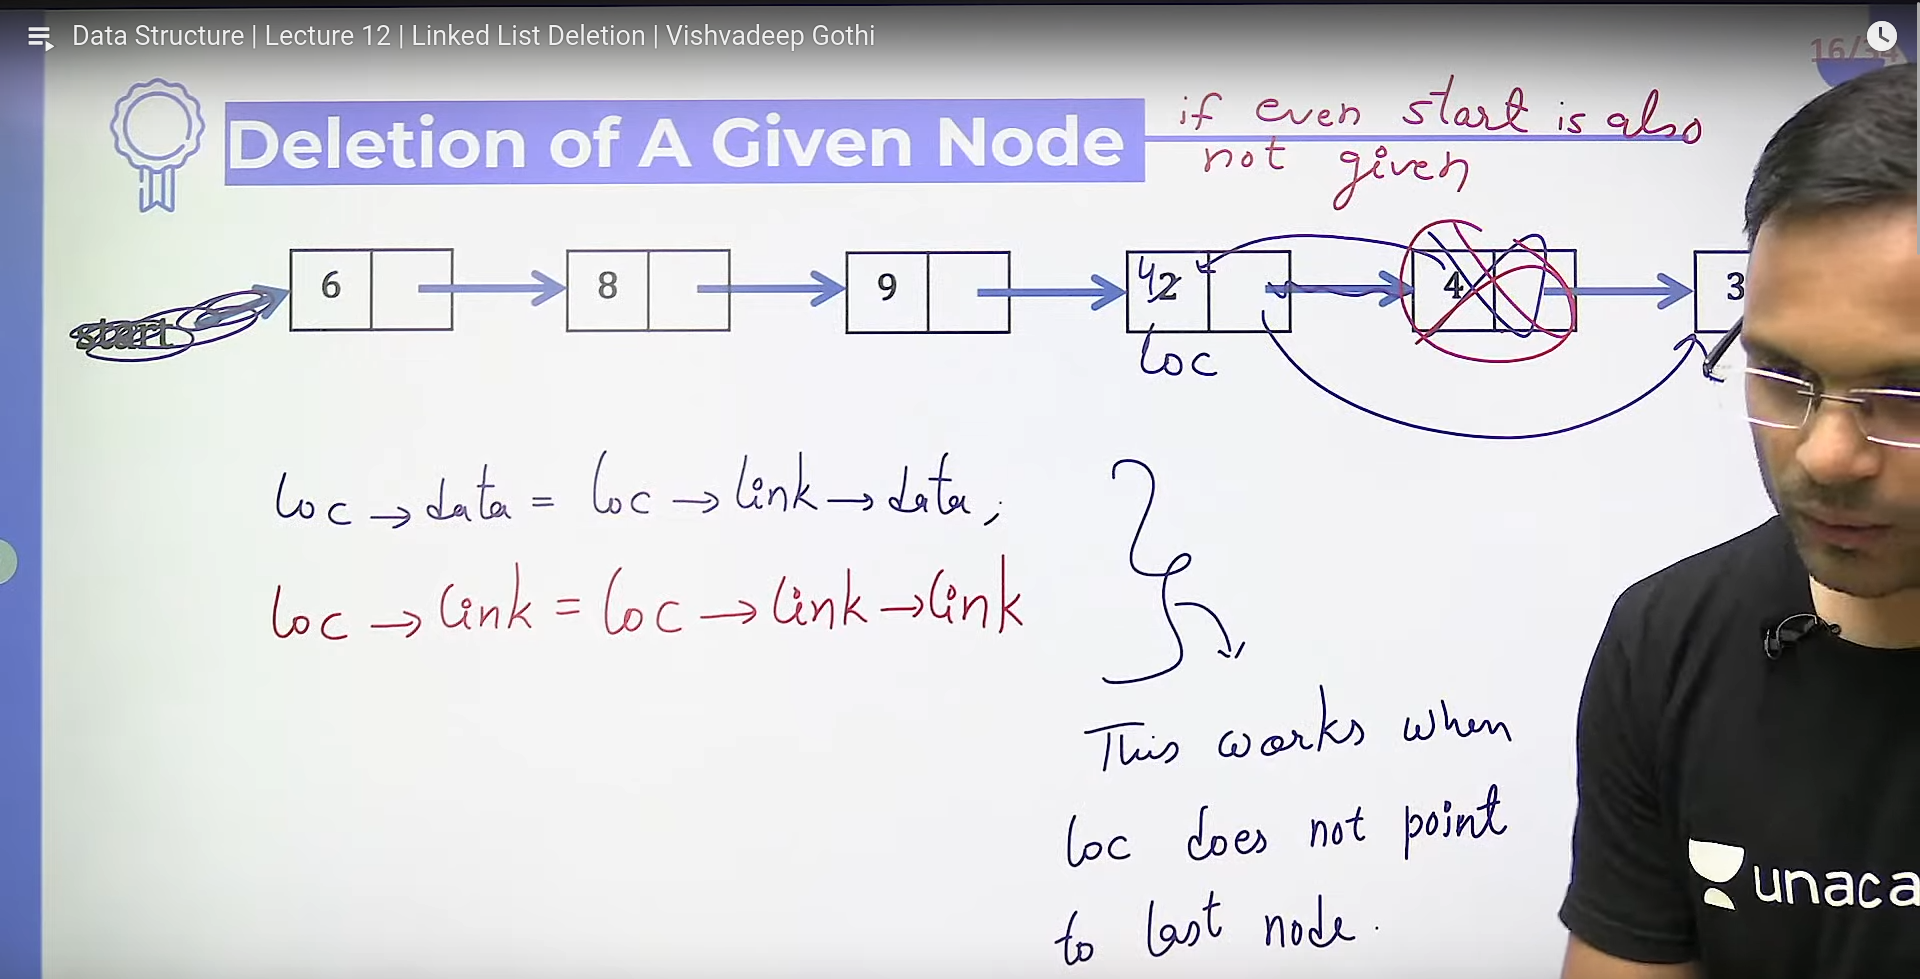 Data Structure | Lecture 12 | Linked List Deletion | Vishvadeep Gothi
16/34
Deletion of A Given Node
if even start is also
not given
start
6 8 9 4 2 4 3
loc
loc → data = loc → link → data;
loc → link = loc → link → link
This works when
loc does not point
to last node.
unaca